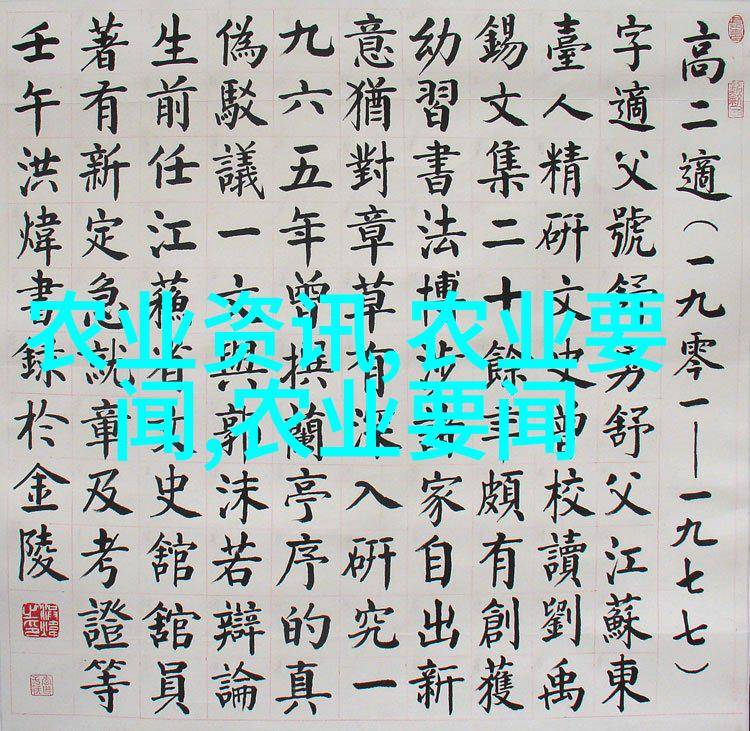 高二適（一九零一——一九七七）
字適父號舒舒父江蘇東
臺人精研文史曾校讀劉禹
錫文集二十餘年頗有創獲
幼習書法博涉諸家自出新
意猶對章草有深入研究一
九六五年曾撰蘭亭序的真
偽駁議一文與郭沫若辯論
生前任江蘇省文史舘舘員
著有新定急就章及考證等
壬午洪煒書錄於金陵
农业资讯,农业要
闻,农业要闻